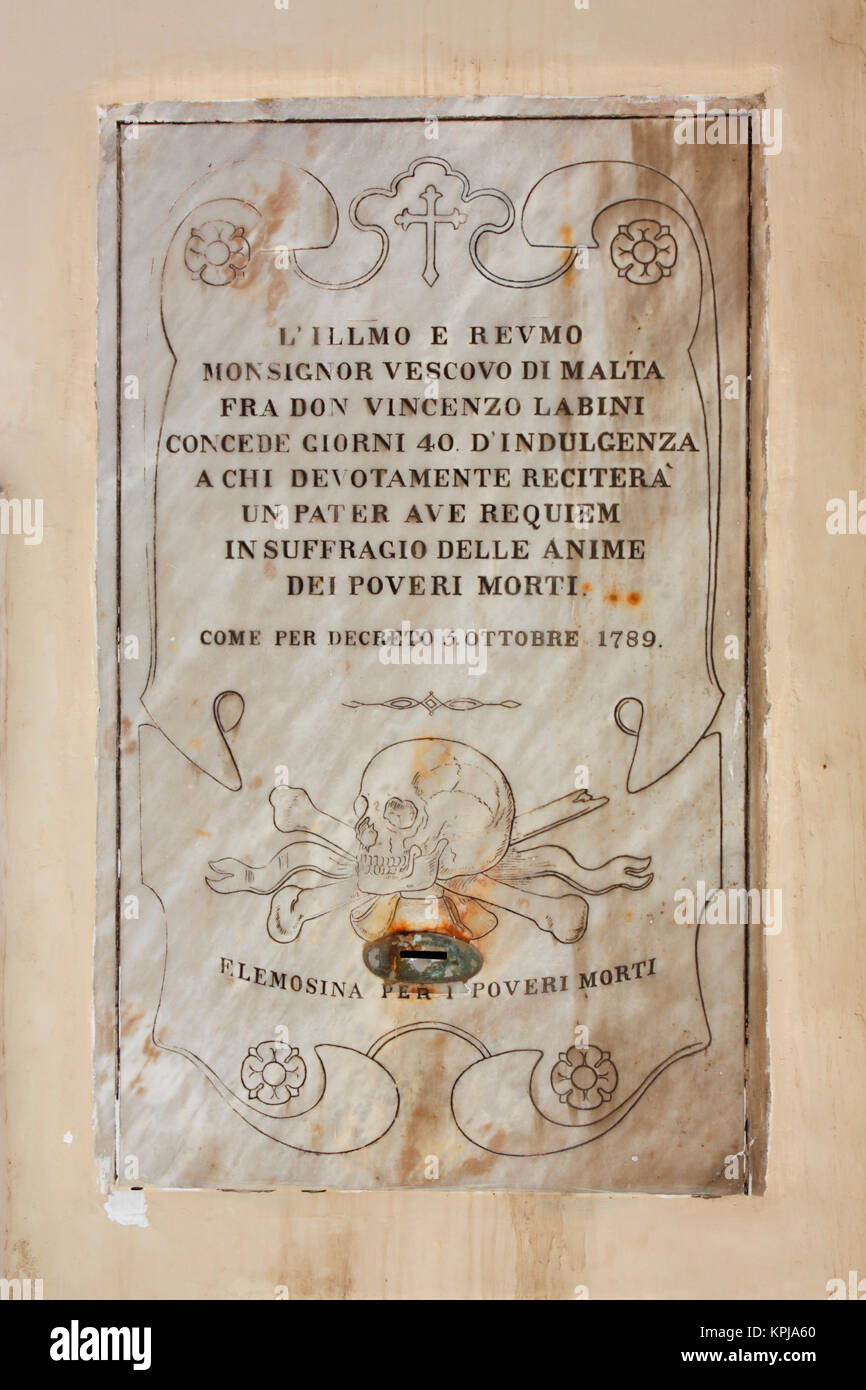 L'ILLMO E REVMO
MONSIGNOR VESCOVO DI MALTA
FRA DON VINCENZO LABINI
CONCEDE GIORNI 40. D'INDULGENZA
A CHI DEVOTAMENTE RECITERA`
UN PATER AVE REQUIEM
IN SUFFRAGIO DELLE ANIME
DEI POVERI MORTI.
COME PER DECRETO 5. OTTOBRE 1789.
ELEMOSINA PER I POVERI MORTI
alamy
Image ID: KPJA60
www.alamy.com